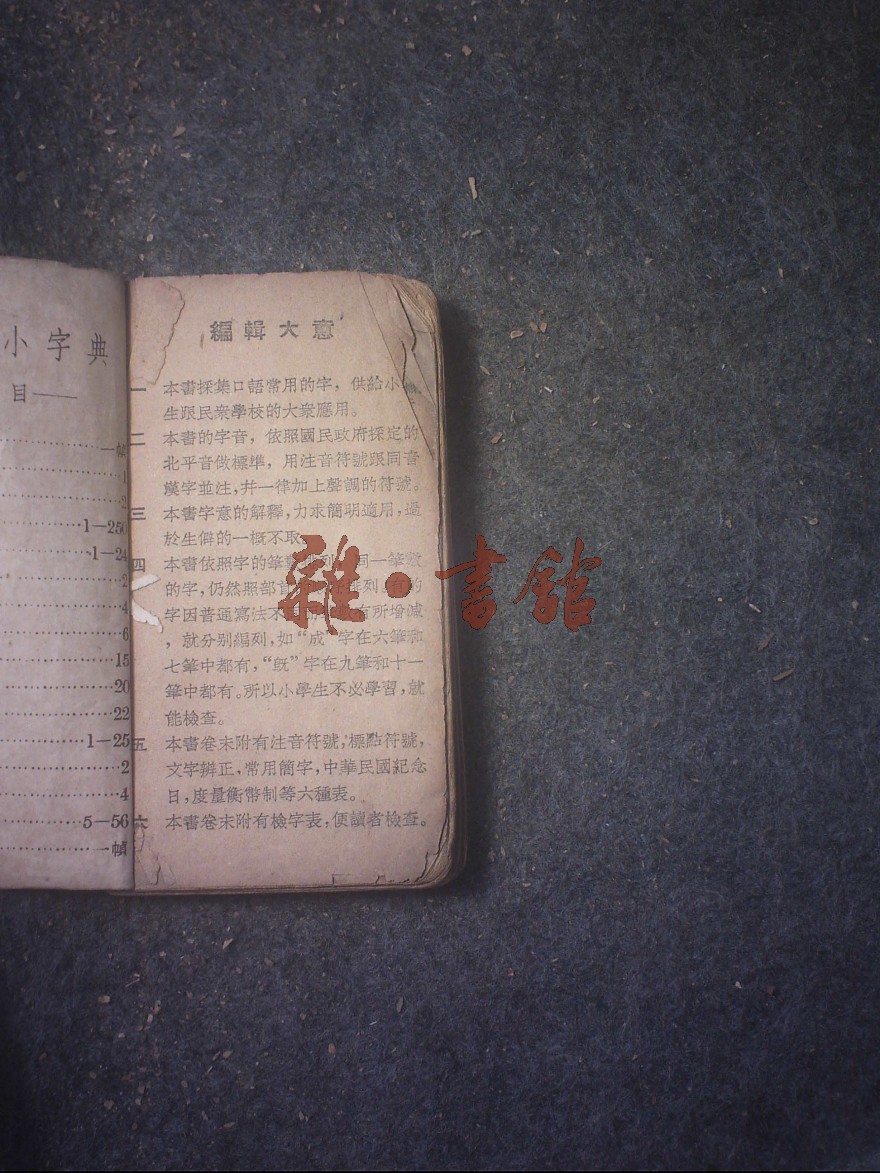 小字典
目——
一幀
1
2
1—250
1—24
2
4
6
15
20
22
1—25
2
4
5—56
一幀
編輯大意
一 本書採集口語常用的字，供給小
生跟民衆學校的大衆應用。
二 本書的字音，依照國民政府採定的
北平音做標準，用注音符號跟同音
漢字並注，并一律加上聲調的符號。
三 本書字意的解釋，力求簡明適用，過
於生僻的一概不取
四 本書依照字的筆數排列，同一筆數
的字，仍然照部首排列。有的
字因普通寫法不有所增減
，就分别編列，如“成”字在六筆和
七筆中都有，“旣”字在九筆和十一
筆中都有。所以小學生不必學習，就
能檢查。
五 本書卷末附有注音符號，標點符號，
文字辨正，常用簡字，中華民國紀念
日，度量衡幣制等六種表。
六 本書卷末附有檢字表，便讀者檢查。
雜·書館